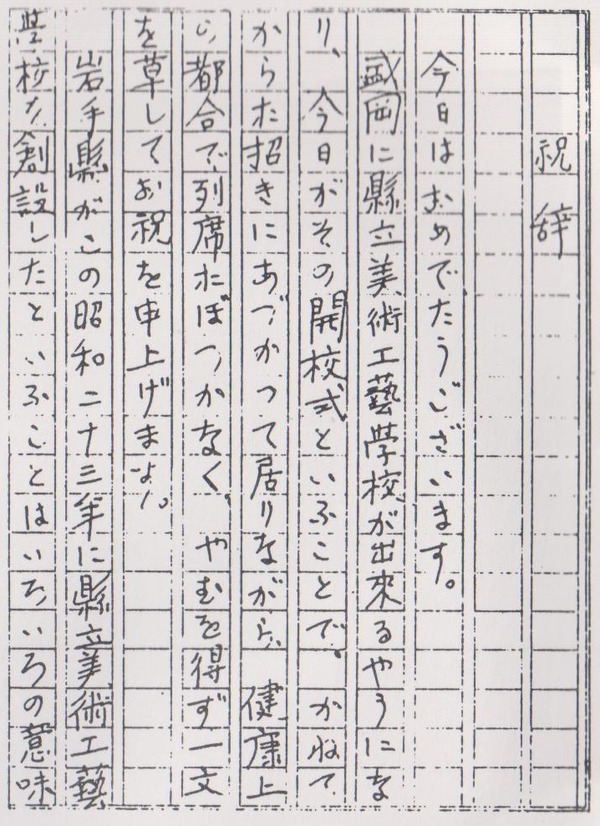 祝辞
今日はおめでたうございます。
盛岡に縣立美術工藝学校が出来るやうにな
り、今日がその開校式といふことで。かねて
からお招きにあづかつて居りながら、健康上
の都合で列席おぼつかなく、やむを得ず一文
を草してお祝を申上げます。
岩手縣がこの昭和二十三年に縣立美術工藝
学校を創設したといふことはいろいろの意味